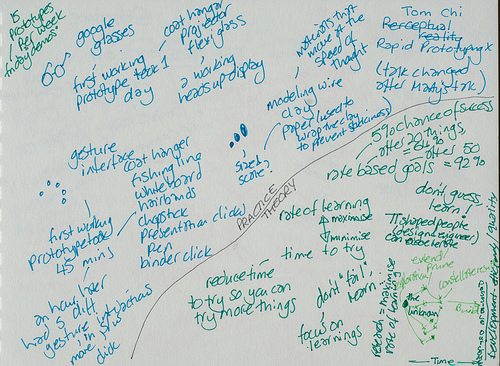 15
prototypes
per week
google
glasses
first working
prototype took 1
day
coat hanger
projector
plexiglass
a working
heads up display
materials that
move at the
speed of
thought
modeling wire
clay
paper (used to
wrap the clay
to prevent stickiness)
sized
score?
Tom Chi
Perceptual
reality
Rapid Prototyping x
(talk changed
after Matty's talk)
gesture
interface
coat hanger
fishing line
whiteboard
hairbands
chopstick
presentation clicker
pen
binder click
first working
prototype took
45 mins
an hour later
had 5 diff.
gesture interactions
more in
click
PRACTICE
THEORY
5% chance of success
after 20 things,
64%
after 50
rate based goals = 92%
don't guess,
learn
rate of learning
maximise
minimise
time to try
reduce time
to try so you can
try more things
don't "fail",
learn
focus on
learnings
T shaped people
(design engineer)
can accelerate
research = maximise
rate of learning
the
unknown
Build
Time